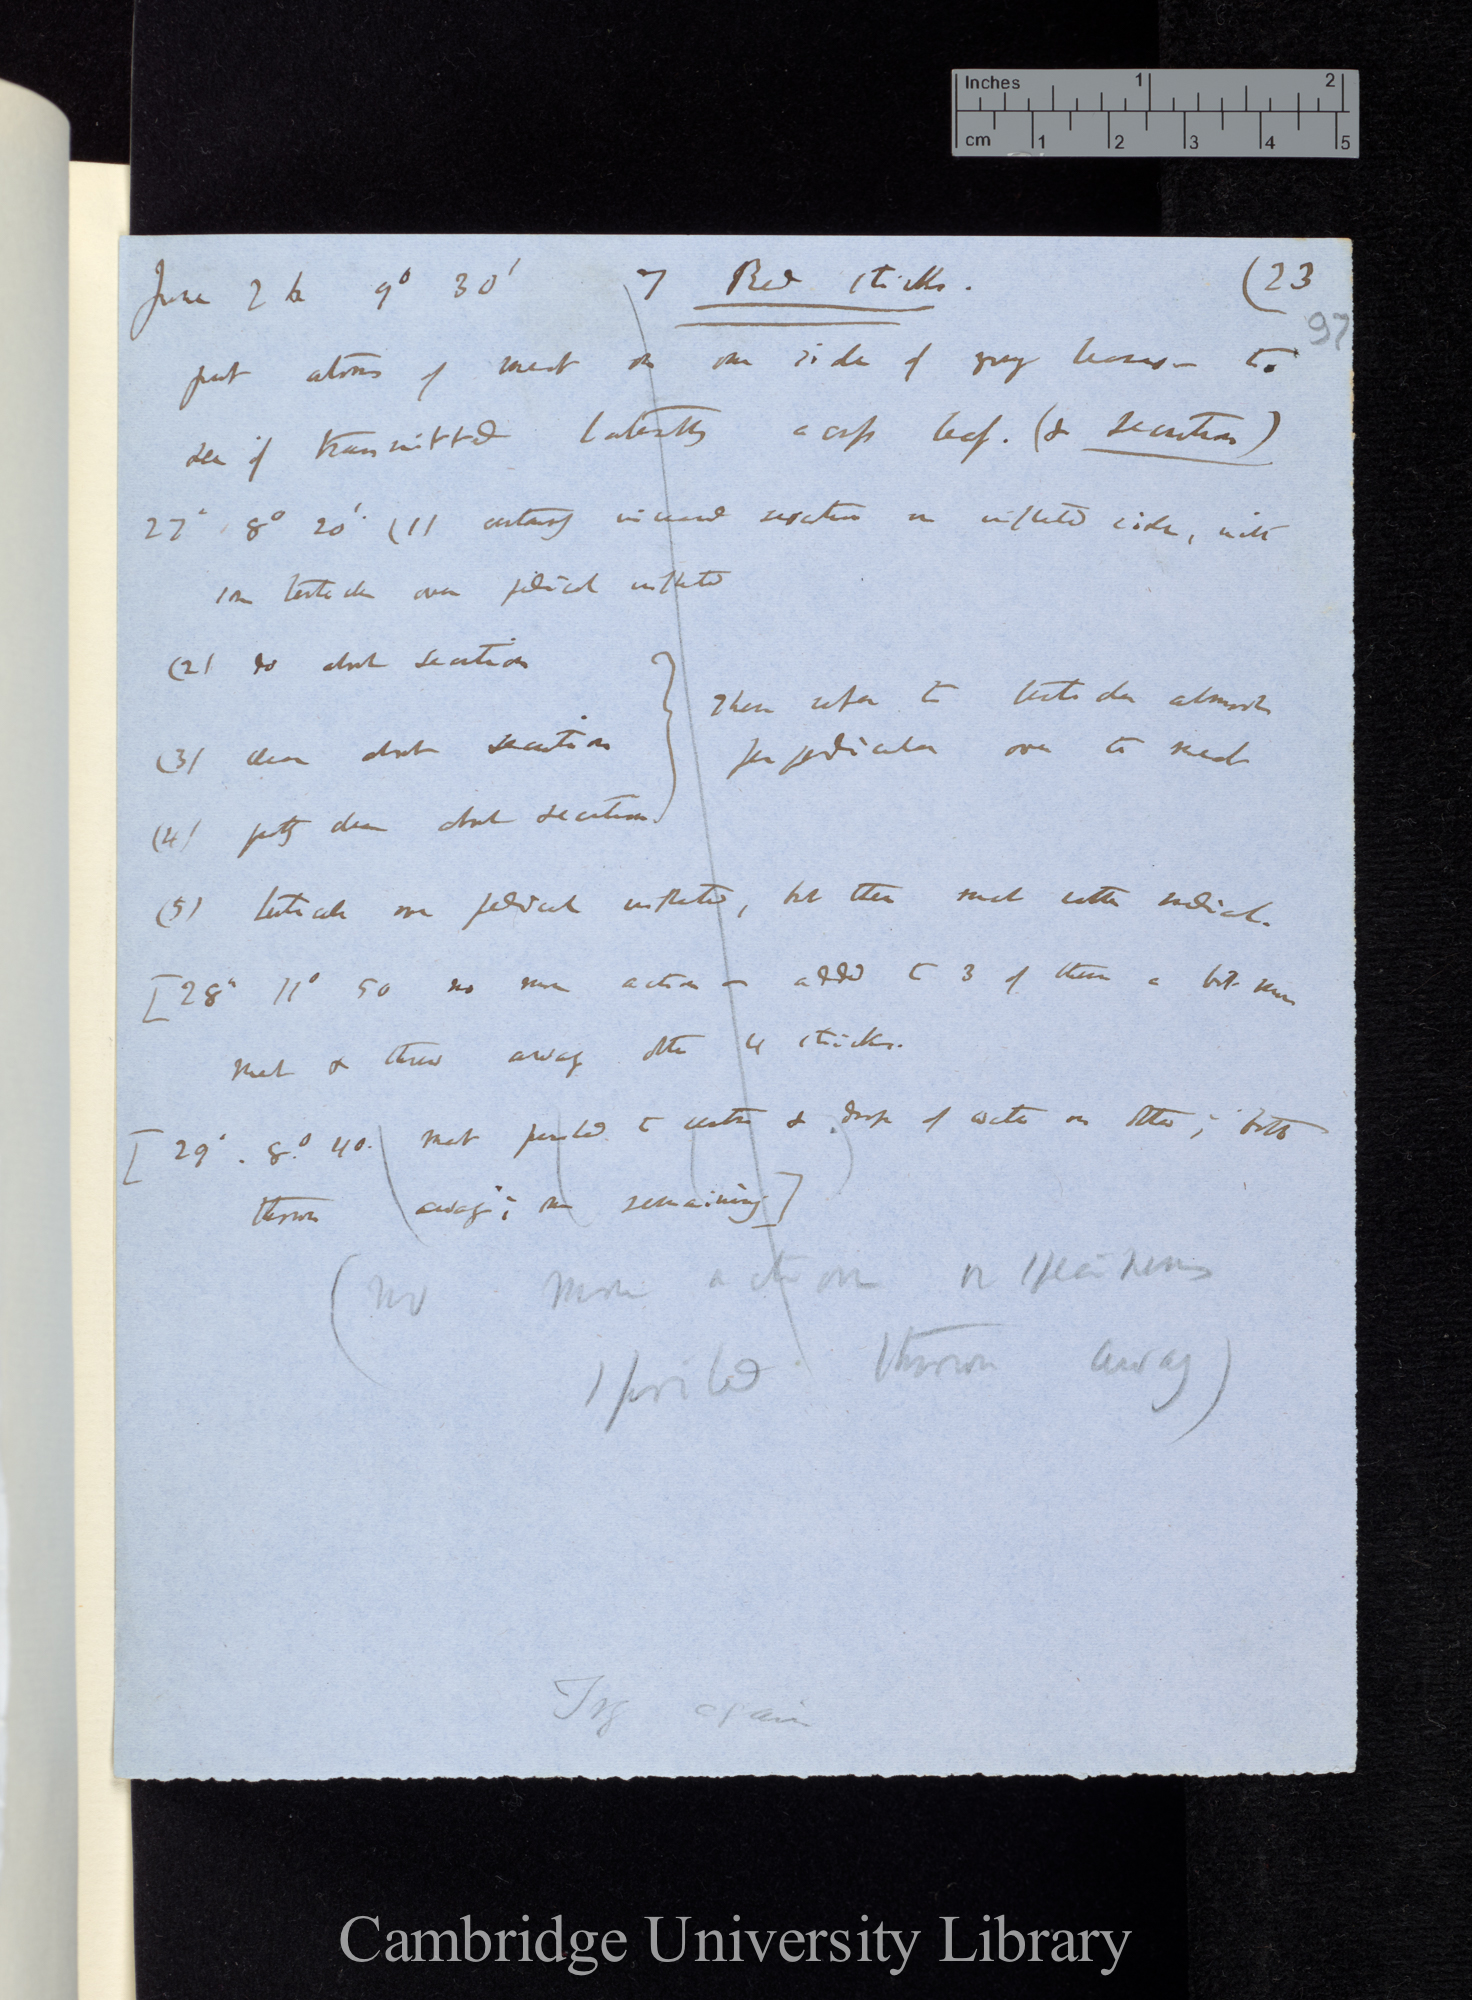 Inches 1 2
cm 1 2 3 4 5
June 26 9° 30' 7 Red sticks. (23
97
put atoms of meat on one side of young leaves to
see if transmitted laterally across leaf. (& secretion)
27th 8° 20' (1) certainly increased secretion on inflected side, with
one tentacle over pedicel inflected
(2) do about secretion
(3) clear about secretion
(4) pretty clear about secretion
} These refer to tentacles almost
perpendicular over to meat
(5) tentacle over pedicel inflected, but then meat rather medial.
[28th 11° 50 no more action added to 3 of them a bit more
meat & threw away other 4 sticks.
[29th. 8° 40. meat to centre & drop of water on other; both
thrown away; one remaining]
(no more action on specimens
spoiled thrown away)
Try again
Cambridge University Library